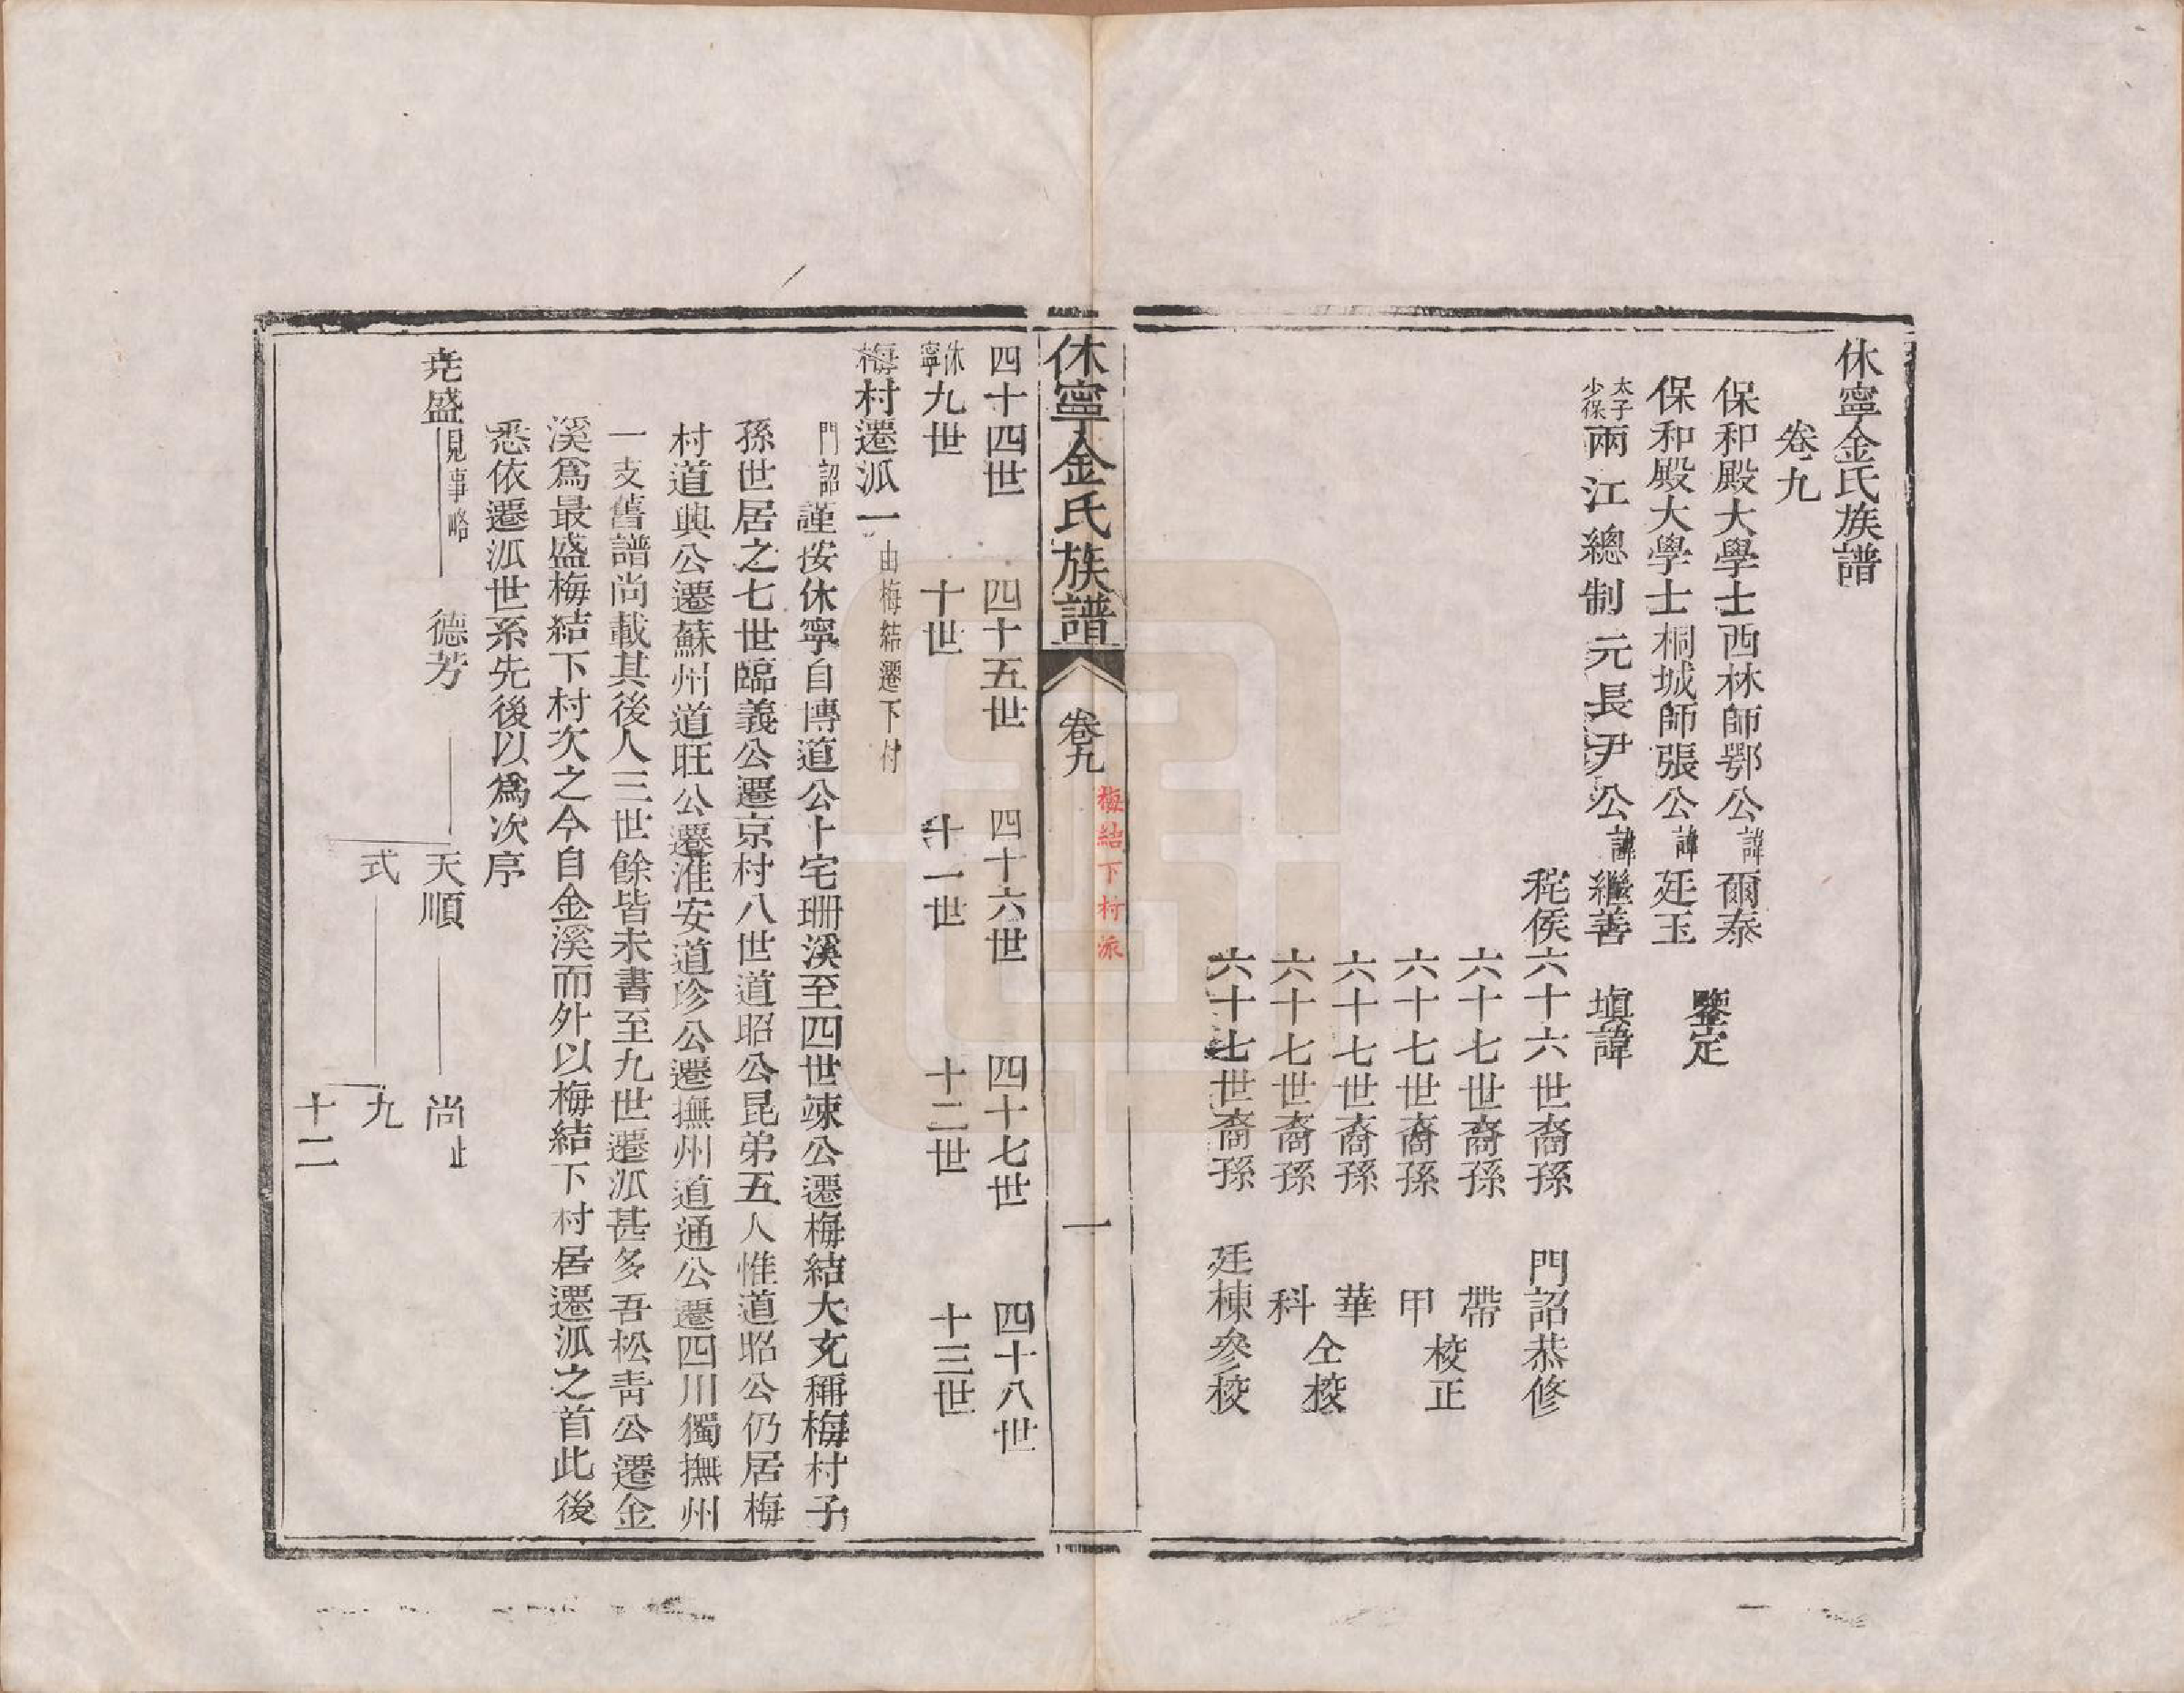 休寧金氏族譜
卷九
保和殿大學士西林師鄂公諱爾泰
保和殿大學士桐城師張公諱廷玉
鑒定
太子少保兩江總制元長尹公諱繼善 塡諱
秺侯六十六世裔孫 門詔恭修
六十七世裔孫 帶
六十七世裔孫 甲
校正
六十七世裔孫 華
六十七世裔孫 科
仝挍
六十七世裔孫 廷棟參挍
休寧金氏族譜 卷九 一
梅結下村派
四十四世 四十五世 四十六世 四十七世 四十八世
休寧九世 十世 十一世 十二世 十三世
梅村遷派一 由梅結遷下村
門詔謹按休寧自博道公卜宅珊溪至四世竦公遷梅結大充稱梅村子
孫世居之七世臨義公遷京村八世道昭公昆弟五人惟道昭公仍居梅
村道興公遷蘇州道旺公遷淮安道珍公遷撫州道通公遷四川獨撫州
一支舊譜尚載其後人三世餘皆未書至九世遷派甚多吾松青公遷金
溪爲最盛梅結下村次之今自金溪而外以梅結下村居遷派之首此後
悉依遷派世系先後以爲次序
尭盛 見事略 德芳 天順 尚止
式 九
十二